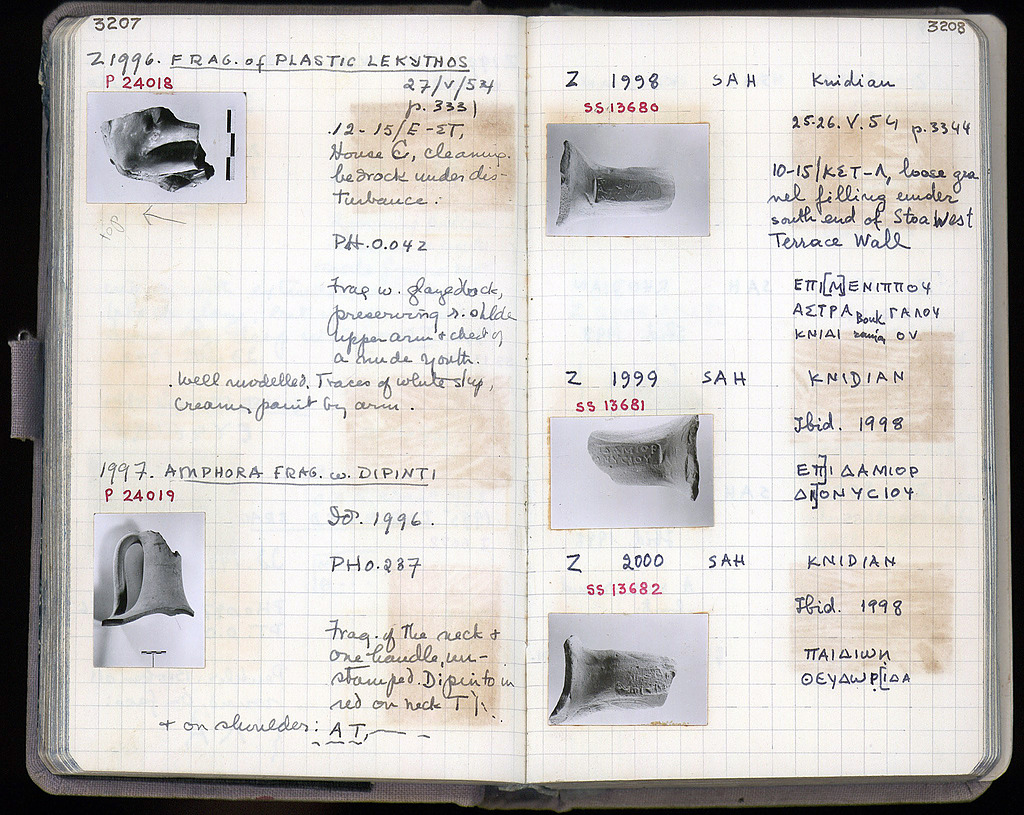 3207
Z1996. FRAG. of PLASTIC LEKYTHOS
P 24018
27/V/54
p. 3331
12-15/E-ΣΤ,
House C, cleaning
bedrock under dis-
turbance.
top
PH. 0.042
Frag w. glazed back,
preserving r. shlder
upper arm + chest of
a nude youth.
Well modelled. Traces of white slip,
creamy paint by arm.
1997. AMPHORA FRAG. w. DIPINTI
P 24019
Id. 1996.
PH 0.237
Frag. of the neck +
one handle, un-
stamped. Dipinto in
red on neck
+ on shoulder: AT,
3208
Z 1998 SAH Knidian
SS 13680
25-26. V. 54 p. 3344
10-15/ΚΣΤ-Λ, loose gra
vel filling under
south end of Stoa West
Terrace Wall
ΕΠΙ[Μ]ΕΝΙΠΠΟΥ
ΑΣΤΡΑ Bouk ΓΑΛΟΥ
ΚΝΙΔΙ ranion ΟΥ
Z 1999 SAH KNIDIAN
SS 13681
Ibid. 1998
ΕΠ]Ι ΔΑΜΙΟΡ
ΔΙ]ΟΝΥCΙΟΥ
Z 2000 SAH KNIDIAN
SS 13682
Ibid. 1998
ΠΑΙΔΙΩΝ
ΘΕΥΔΩΡ[ΙΔΑ